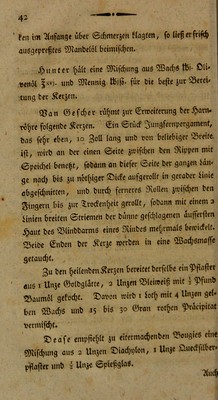 42
ken im Anfange über Schmerzen klagten, so ließ er frisch
ausgepreßtes Mandelöl beimischen.
Hunter hält eine Mischung aus Wachs
venöl und Mennig für die beste zur Berei-
tung der Kerzen.
Van Gescher rühmt zur Erweiterung der Harn-
röhre folgende Kerzen. Ein Stück Jungfernpergament,
das sehr eben, 10 Zoll lang und von beliebiger Breite
ist, wird an der einen Seite zwischen den Rippen mit
Speichel benetzt, sodann an dieser Seite der ganzen Län-
ge nach bis zu nöthiger Dicke aufgerollt in gerader Linie
abgeschnitten, und durch ferneres Rollen zwischen den
Fingern bis zur Trockenheit gerollt, sodann mit einem 2
Linien breiten Striemen der dünne geschlagenen äussersten
Haut des Blinddarms eines Rindes mehrmals bewickelt.
Beide Enden der Kerze werden in eine Wachsmasse
getaucht.
Zu den heilenden Kerzen bereitet derselbe ein Pflaster
aus 1 Unze Goldglätte, 2 Unzen Bleiweiß mit ½ Pfund
Baumöl gekocht. Davon wird 1 Loth mit 4 Unzen gel-
ben Wachs und 15 bis 30 Gran rothen Präcipitat
vermischt.
Dease empfiehlt zu eitermachenden Bougies eine
Mischung aus 2 Unzen Diachylon, 1 Unze Quecksilber-
pflaster und ½ Unze Spießglas.
Auch